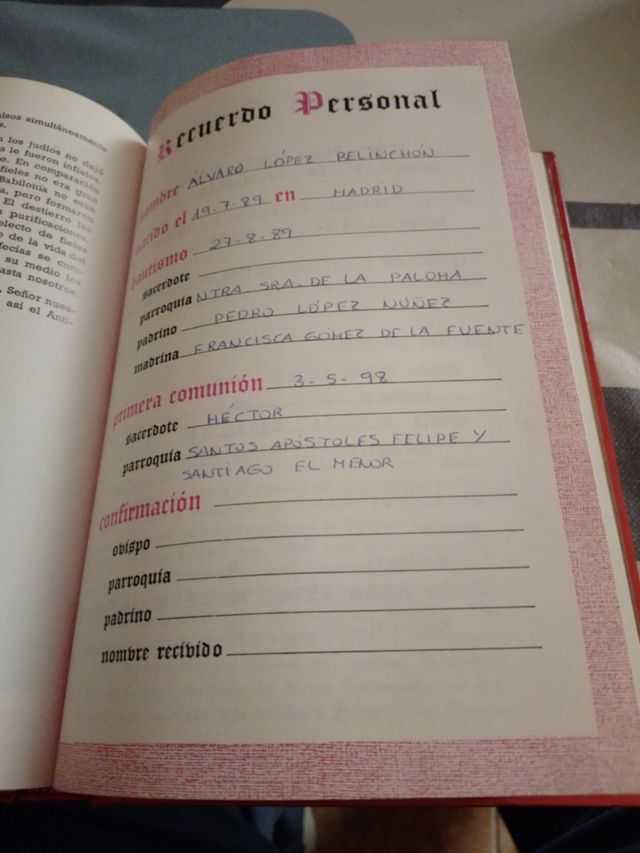 simultáneamente
los judíos no dejó
le fueron infieles
En comparación
fieles no era gran
Babilonia no eran
pero formaron
El destierro les
purificaciones.
electo de fieles
de la vida del
ecías se cum-
su medio los
asta nosotros.
Señor nues-
así el Anti-
Recuerdo Personal
nombre ÁLVARO LÓPEZ BELINCHÓN
nacido el 19-7-89 en MADRID
bautismo 27-8-89
sacerdote
parroquia NTRA. SRA. DE LA PALOMA
padrino PEDRO LÓPEZ NUÑEZ
madrina FRANCISCA GÓMEZ DE LA FUENTE
primera comunión 3-5-98
sacerdote HÉCTOR
parroquia SANTOS APÓSTOLES FELIPE Y
SANTIAGO EL MENOR
confirmación
obispo
parroquia
padrino
nombre recibido